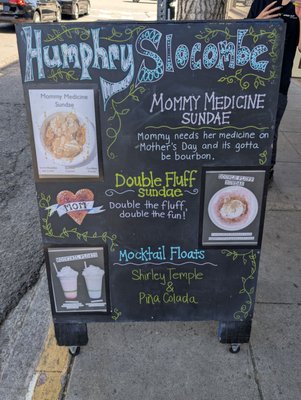 Humphry Slocombe
MOMMY MEDICINE SUNDAE
MOMMY MEDICINE
SUNDAE
Mommy needs her medicine on
Mother's Day and its gotta
be bourbon.
Double Fluff
sundae
Double the fluff,
double the fun!
MOM
DOUBLE FLUFF
SUNDAE
Mocktail Floats
MOCKTAIL FLOATS
Shirley Temple
&
Piña Colada